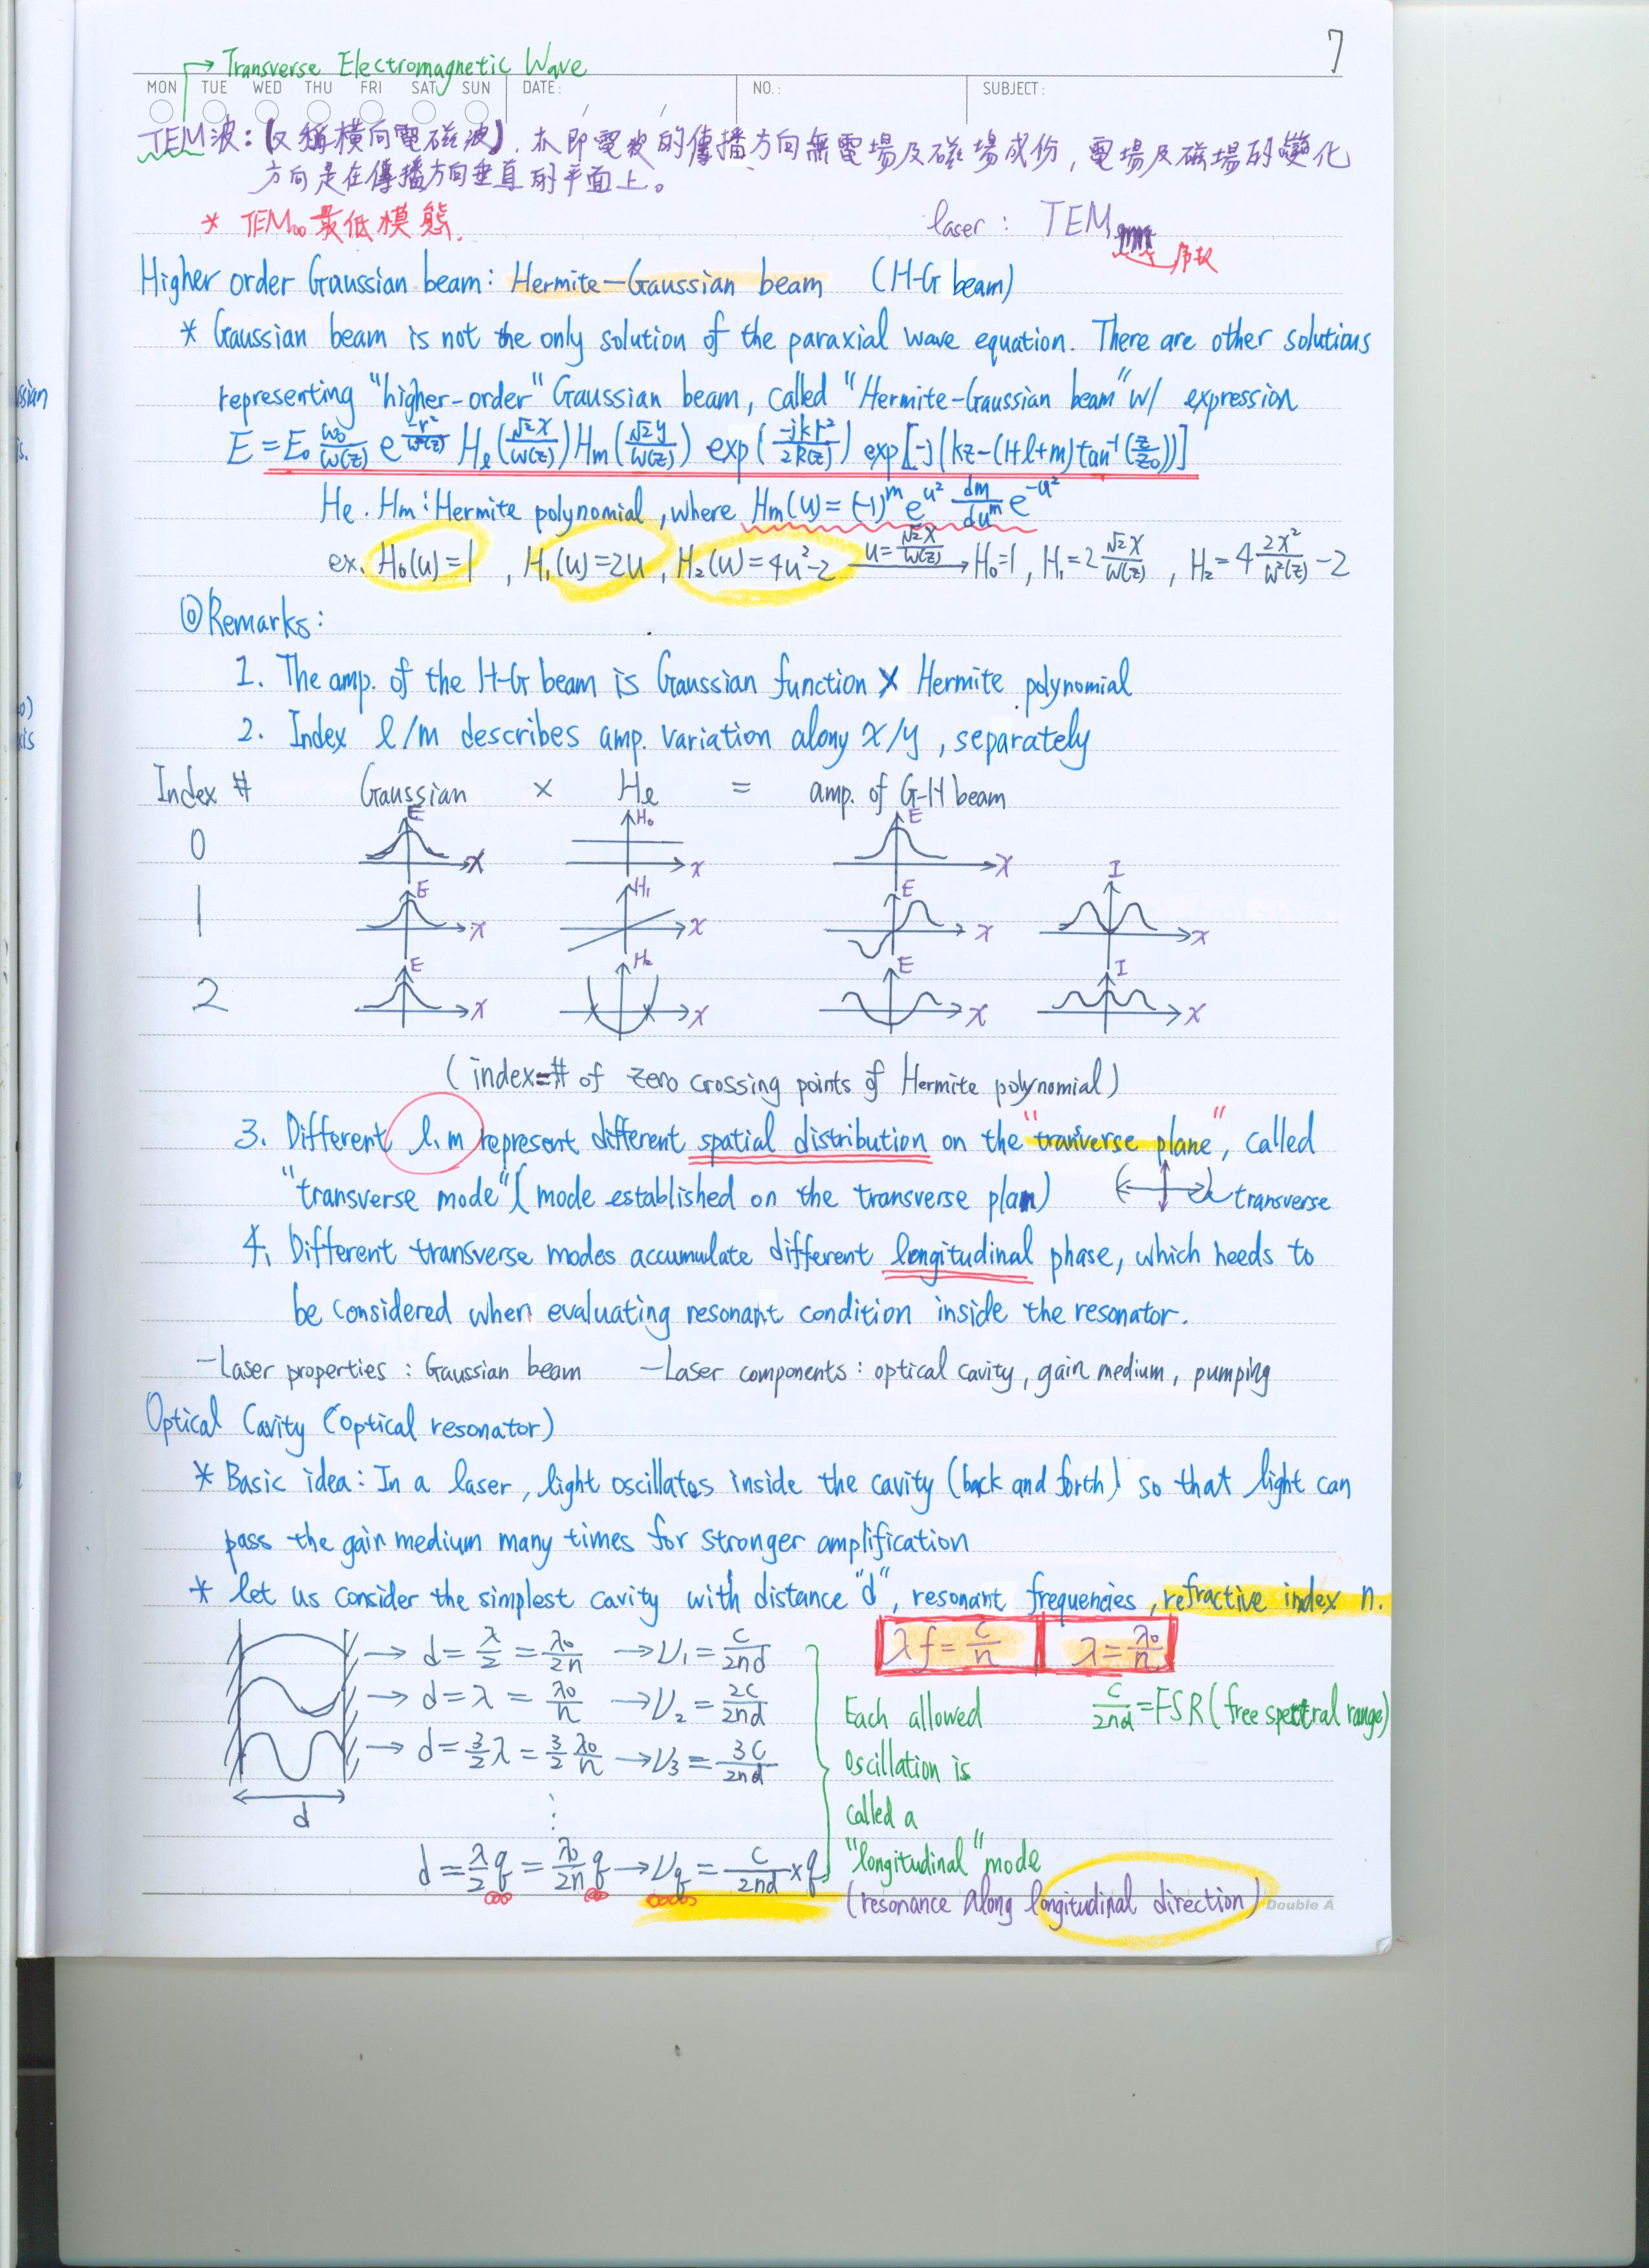 7
→ Transverse Electromagnetic Wave
MON TUE WED THU FRI SAT SUN DATE: / / NO.: SUBJECT:
TEM波:【又稱橫向電磁波】, 亦即電波的傳播方向無電場及磁場成份, 電場及磁場的變化
方向是在傳播方向垂直的平面上。
* TEM₀₀ 最低模態.
laser: TEM
Higher order Gaussian beam: Hermite-Gaussian beam (H-G beam)
* Gaussian beam is not the only solution of the paraxial wave equation. There are other solutions
representing "higher-order" Gaussian beam, called "Hermite-Gaussian beam" w/ expression
E = E₀ w₀/w(z) e^(-r²/w²(z)) Hℓ(√2x/w(z)) Hm(√2y/w(z)) exp(-jkr²/2R(z)) exp[-j(kz-(1+l+m)tan⁻¹(z/z₀))]
Hℓ. Hm: Hermite polynomial, where Hm(u) = (-1)^m e^(u²) dm/du^m e^(-u²)
ex. H₀(u)=1, H₁(u)=2u, H₂(u)=4u²-2 u=√2x/w(z) → H₀=1, H₁=2 √2x/w(z), H₂=4 2x²/w²(z) -2
◎Remarks:
1. The amp. of the H-G beam is Gaussian function × Hermite polynomial
2. Index l/m describes amp. variation along x/y, separately
Index # Gaussian × Hℓ = amp. of G-H beam
0 E x H₀ x E x
1 E x H₁ x E x I x
2 E x H₂ x E x I x
(index=# of zero crossing points of Hermite polynomial)
3. Different l, m represent different spatial distribution on the "tranverse plane", called
"transverse mode" (mode established on the transverse plan) transverse
4. Different transverse modes accumulate different longitudinal phase, which needs to
be considered when evaluating resonant condition inside the resonator.
-Laser properties: Gaussian beam -Laser components: optical cavity, gain medium, pumping
Optical Cavity (optical resonator)
* Basic idea: In a laser, light oscillates inside the cavity (back and forth) so that light can
pass the gain medium many times for stronger amplification
* let us consider the simplest cavity with distance "d", resonant frequencies, refractive index n.
→ d = λ/2 = λ₀/2n → ν₁ = c/2nd
λf = c/n λ = λ₀/n
→ d = λ = λ₀/n → ν₂ = 2c/2nd
→ d = 3/2 λ = 3/2 λ₀/n → ν₃ = 3c/2nd
d
⋮
d = λ/2 q = λ₀/2n q → νq = c/2nd × q
Each allowed
oscillation is
called a
"longitudinal" mode
(resonance along longitudinal direction)
c/2nd = FSR (free spectral range)
Double A